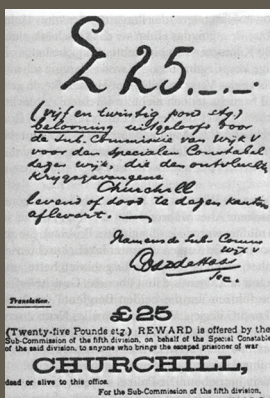 £ 25.–.–.
(vijf en twintig pond stg)
belooning uitgeloofd door
de Sub. Commissie van Wijk V
voor den specialen Constabel
dezer wijk, die den ontvluchte
Krijgsgevangene
Churchill
levend of dood te dezer kantore
aflevert. —
Namens de Sub. Comm
Wijk V
Sec.
Translation.
£25
(Twenty-five Pounds stg.) REWARD is offered by the
Sub-Commission of the fifth division, on behalf of the Special Constable
of the said division, to anyone who brings the escaped prisoner of war
CHURCHILL,
dead or alive to this office.
For the Sub-Commission of the fifth division.